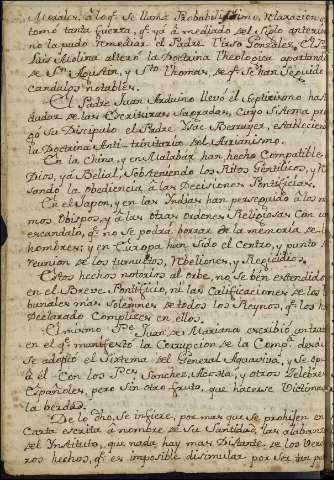 Morales, à lo q.e se llamó Probabilismo, y laxacion, q.e
tomó tanta fuerza, q.e yá à mediado del siglo anterior
no la pudo remediar el Padre Tirso Gonzalez. El P.e
Luis Molina alteró la Doctrina Theologica apartando
se de S.n Agustin, y Sto. Thomas, de q.e se han seguido
candalos notables.
El Padre Juan Arduino llevó el septicismo has
dudar de las Escrituras Sagradas, cuyo Sistema pr
gó su Discipulo el Padre Isac Berruyer, establecien
la Doctrina Anti-trinitaria del Arrianismo.
En la China, y en Malabar han hecho compatible
Dios, yà Belial, sosteniendo los Ritos Gentilicos, y r
sando la obediencia à las Decisiones Pontificias.
En el Japon, y en las Indias han perseguido à los m
mos Obispos, y à las otras ordenes Religiosas con un
escandalo, q.e no se podra borrar de la memoria de
hombres; y en Europa han sido el Centro, y punto
reunion de los tumultos, Rebeliones, y Regicidios.
Estos hechos notorios al orbe, no se ven estendidos
en el Breve Pontificio, ni las Calificaciones de los
bunales mas solemnes de todos los Reynos, q.e los h
Declarado Complices en ellos.
El mismo P.e Juan de Mariana escribió un trat
en el q.e manifestó la corrupcion de la Comp.a desde
se adoptó el Sistema del General Aquaviva, y se op
à él con los P.es Sanchez, Acosta, y otros celebres
Españoles, pero sin otro fruto, que hacerse Victimas
la berdad.
De lo dho. se infiere, por mas que se prohijen en
Carta escrita à nombre de su Santidad, las alabanz
del Instituto, que nada hay mas Distante de los verda
ros hechos, q.e es imposible disimular por ser tan pu